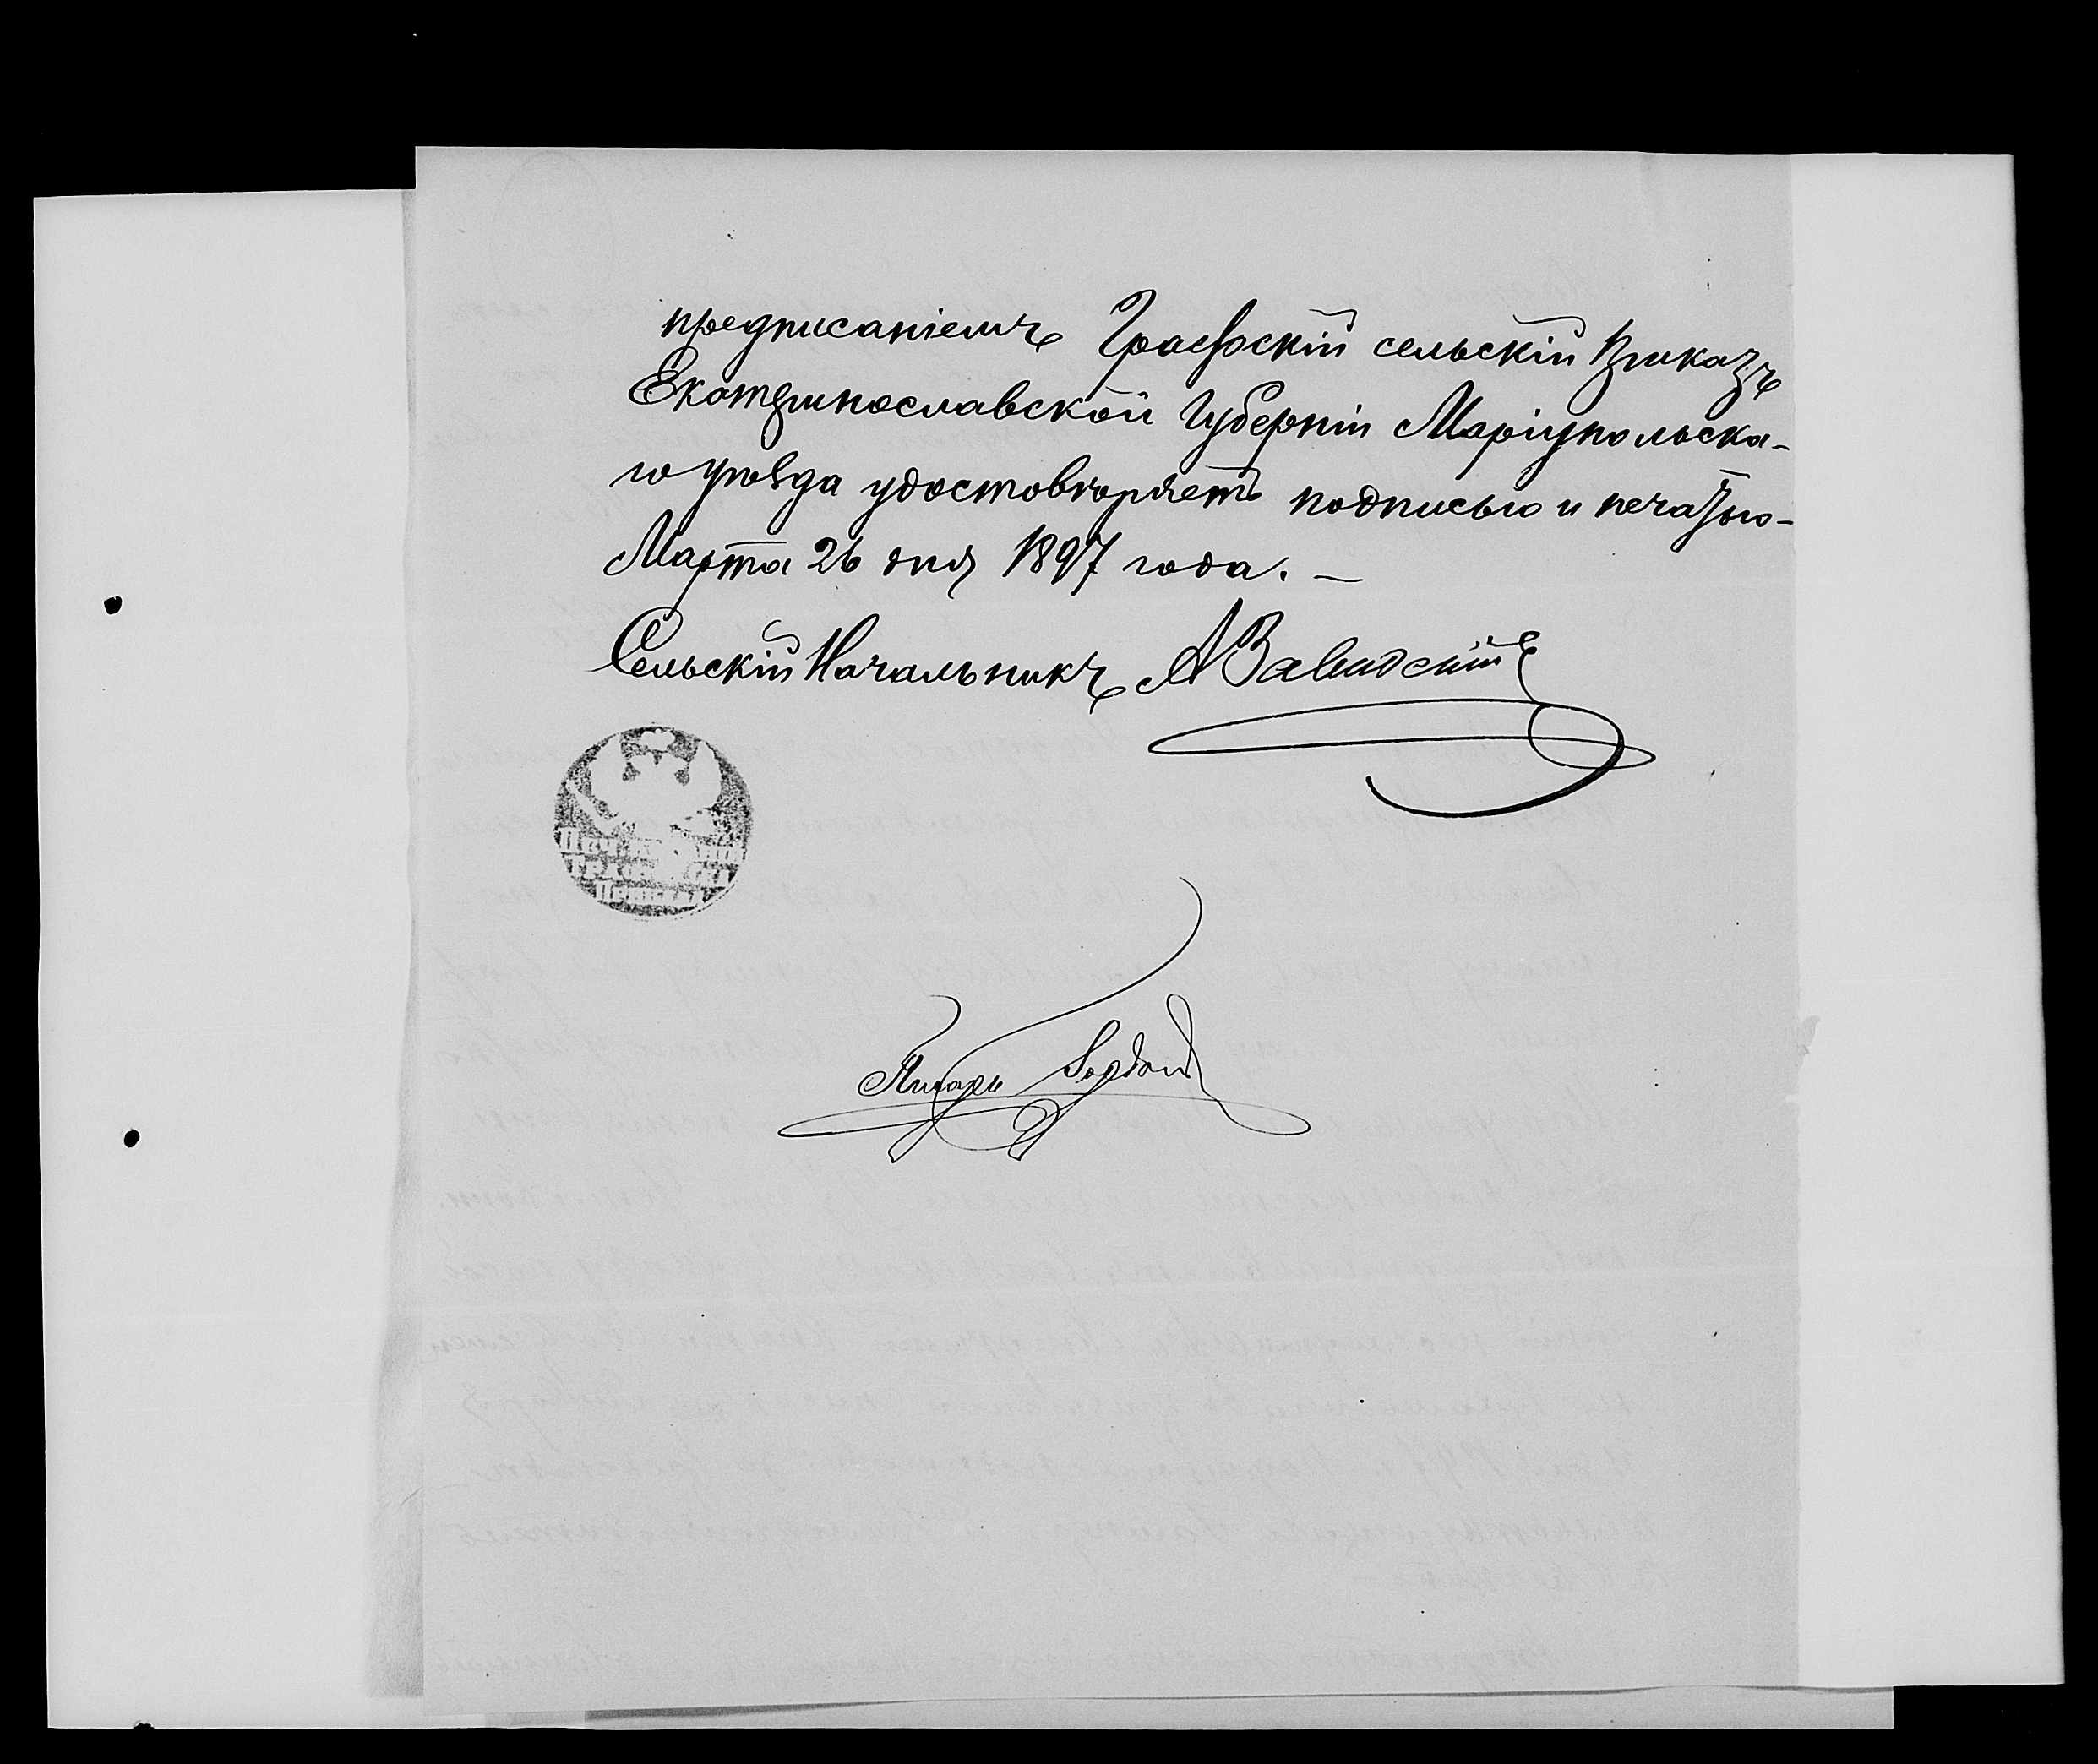 предписаніемъ Графскій сельскій Приказъ
Екатеринославской Губерніи Маріупольска-
го уѣзда удостовѣряетъ подписью и печатью-
Марта 26 дня 1897 года. —
Сельскій Начальникъ А Завадскій
Писарь